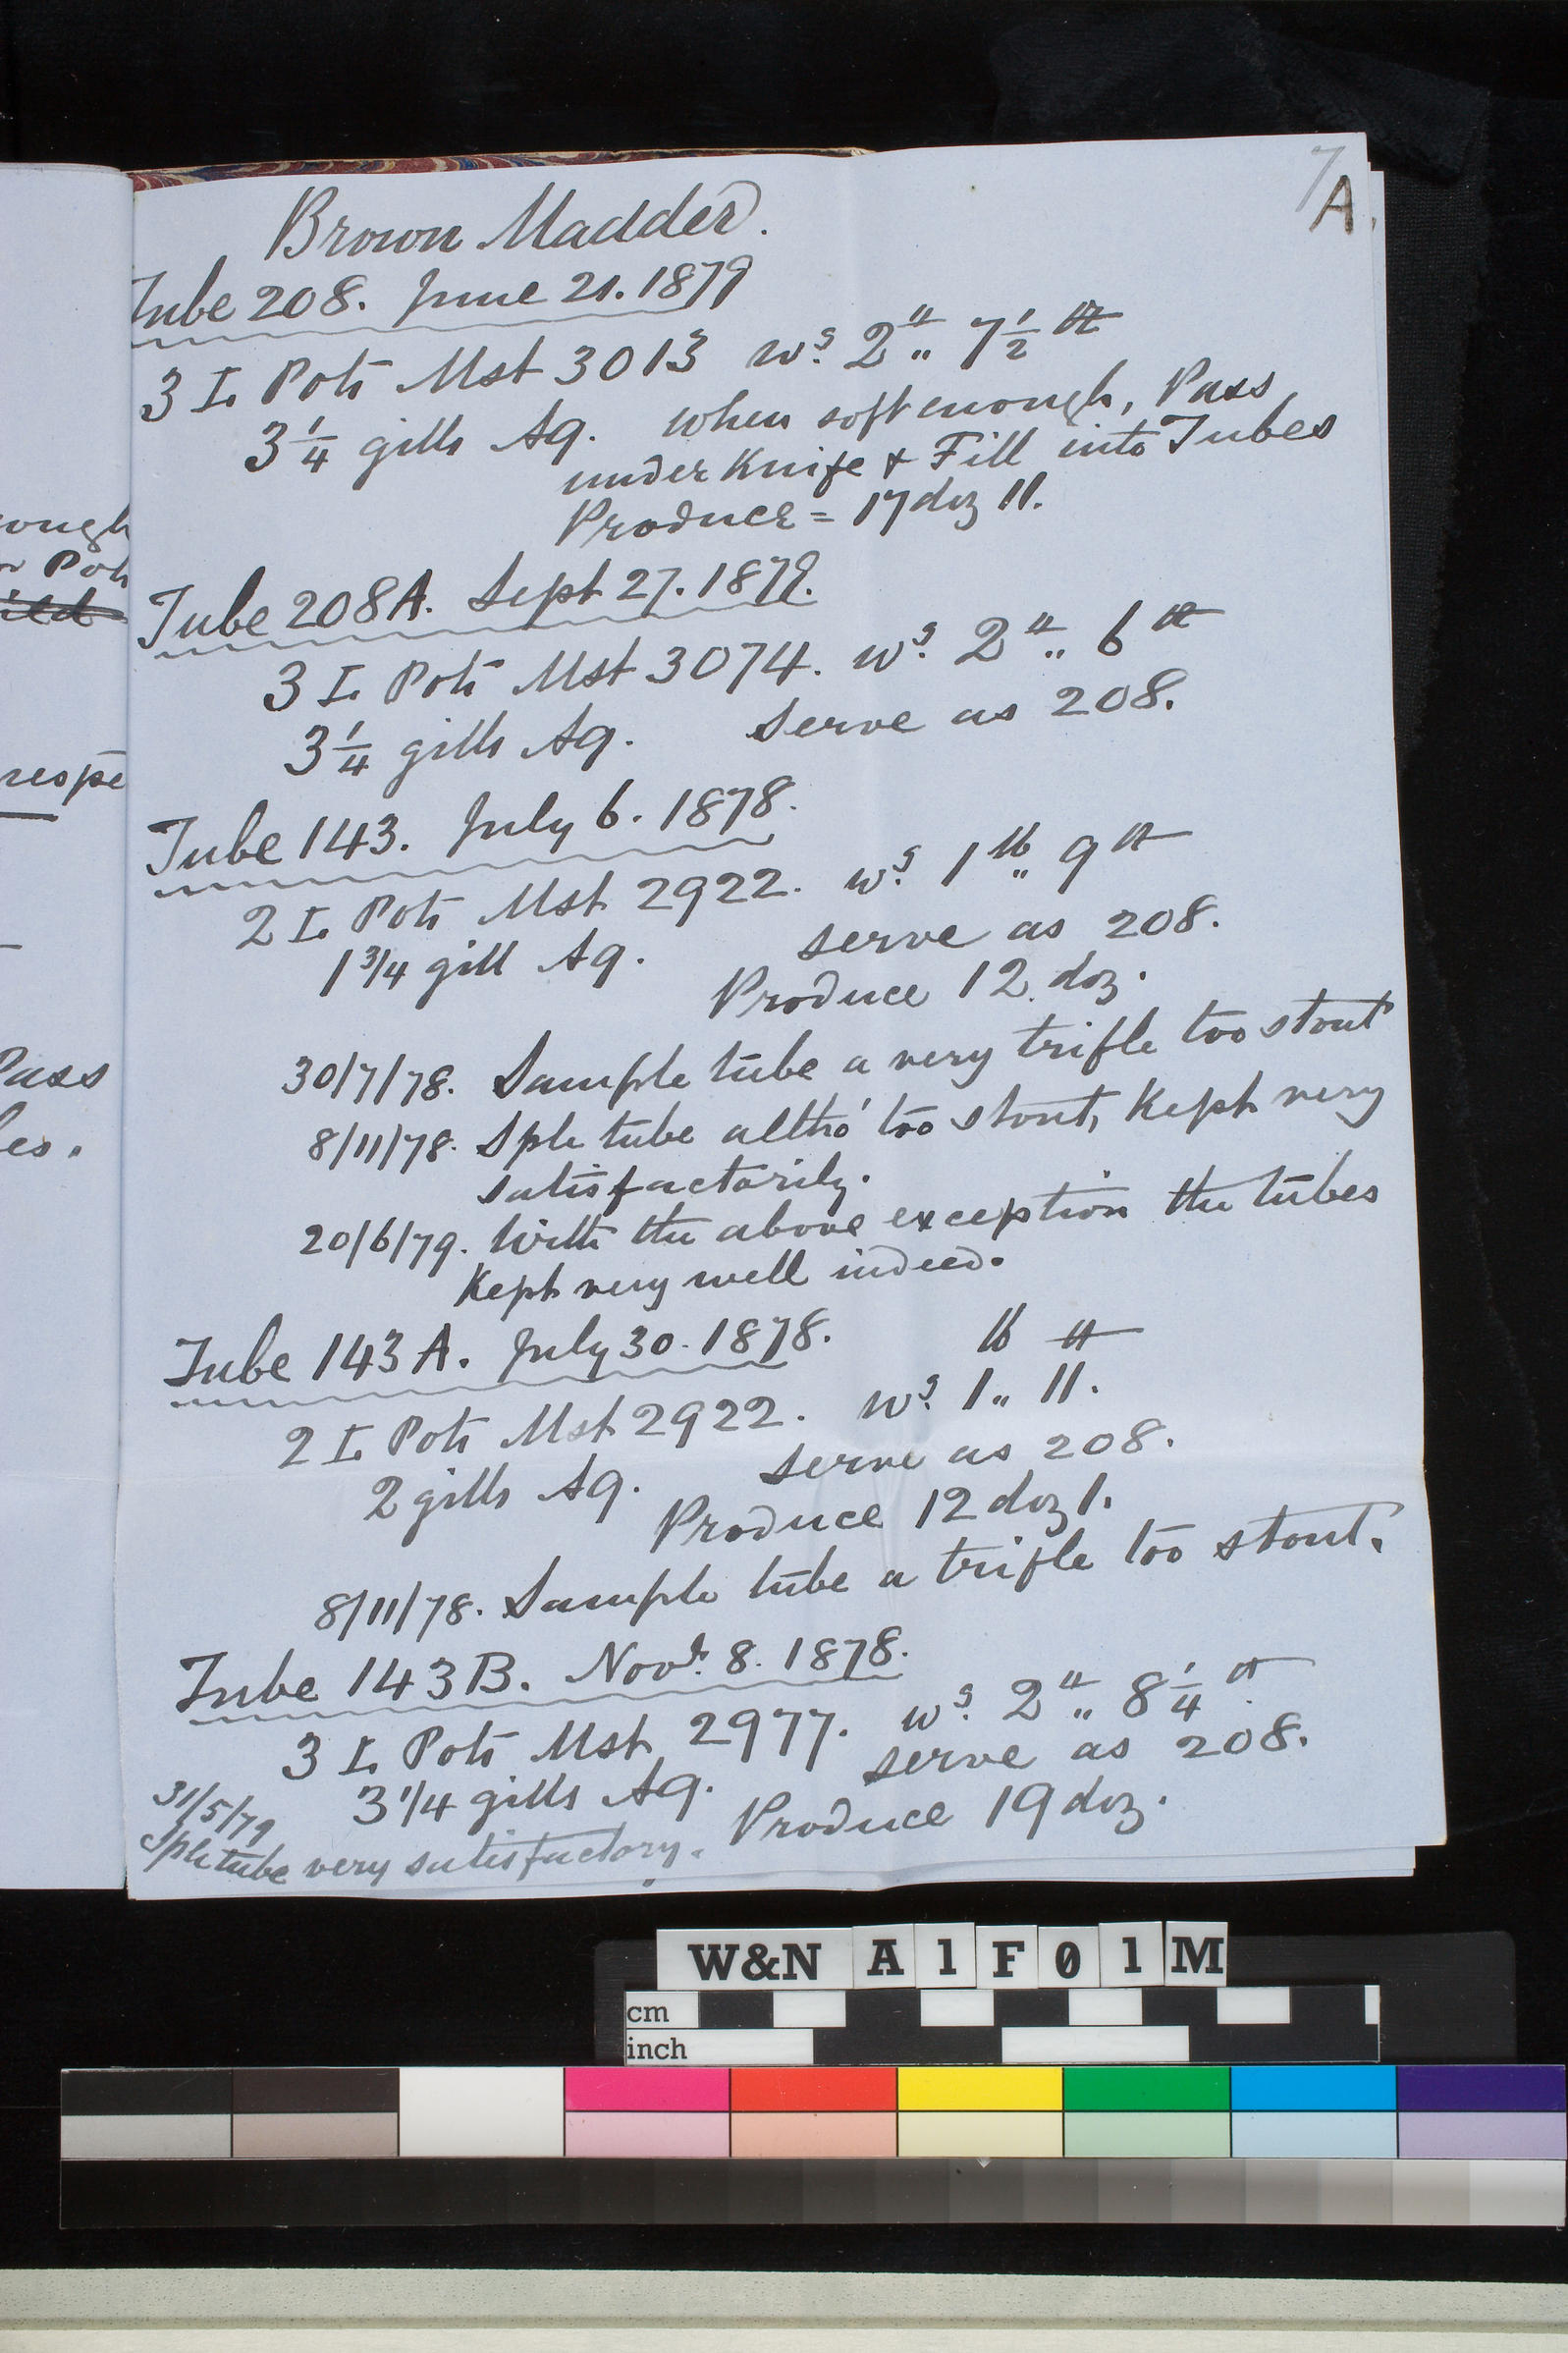 7
A.
Brown Madder.
Tube 208. June 21. 1879
3 I. Pots Mst 3013 ws. 2 " 7 1/2
3 1/4 gills Aq. when soft enough, Pass
under Knife & Fill into Tubes
Produce = 17 doz 11.
Tube 208A. Sept 27. 1879.
3 I. Pots Mst 3074. ws. 2 " 6
3 1/4 gills Aq. Serve as 208.
Tube 143. July 6. 1878.
2 I. Pots Mst 2922. ws. 1 lb " 9
1 3/4 gill Aq. serve as 208.
Produce 12 doz.
30/7/78. Sample tube a very trifle too stout
8/11/78. Sple tube altho' too stout, Kept very
satisfactorily.
20/6/79. With the above exception the tubes
Kept very well indeed.
Tube 143A. July 30. 1878. lb
2 I. Pots Mst 2922. ws. 1 " 11.
2 gills Aq. Serve as 208.
Produce 12 doz 1.
8/11/78. Sample tube a trifle too stout.
Tube 143B. Novr. 8. 1878.
3 I. Pots Mst 2977. ws. 2 " 8 1/4
3 1/4 gills Aq. serve as 208.
31/5/79 Produce 19 doz.
Sple tube very satisfactory.
ough
Pots
respe
Pass
es.
W&N A1F01M
cm
inch